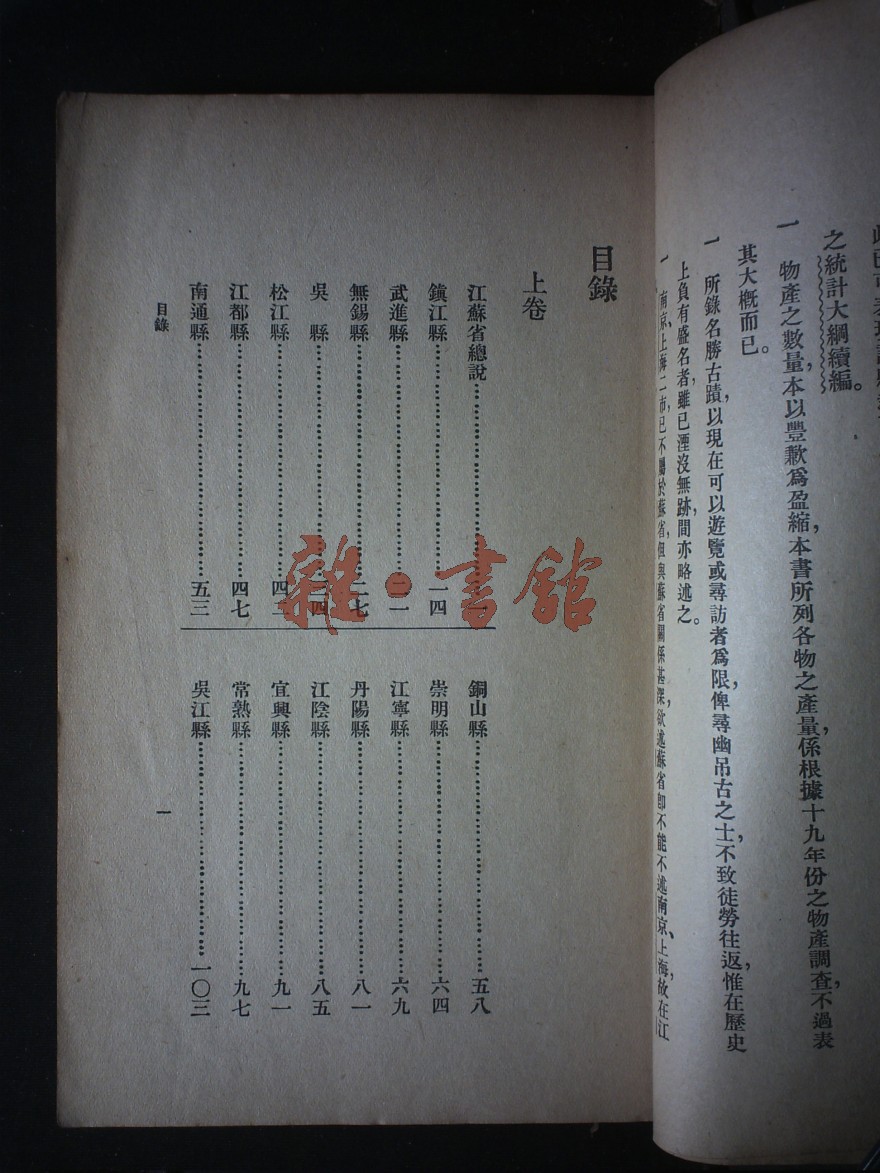 之統計大綱續編。
一 物產之數量，本以豐歉爲盈縮，本書所列各物之產量，係根據十九年份之物產調查，不過表
其大槪而已。
一 所錄名勝古蹟，以現在可以遊覽或尋訪者爲限，俾尋幽吊古之士，不致徒勞往返，惟在歷史
上負有盛名者，雖已湮沒無跡，間亦略述之。
一 南京、上海二市，已不屬於蘇省，但與蘇省關係甚深，欲述蘇省，卽不能不述南京、上海，故在江
目錄
上卷
江蘇省總說
鎮江縣 一四
武進縣
無錫縣 二七
吳 縣
松江縣
江都縣 四七
南通縣 五三
銅山縣 五八
崇明縣 六四
江寧縣 六九
丹陽縣 八一
江陰縣 八五
宜興縣 九一
常熟縣 九七
吳江縣 一〇三
目錄
一
雜·書館